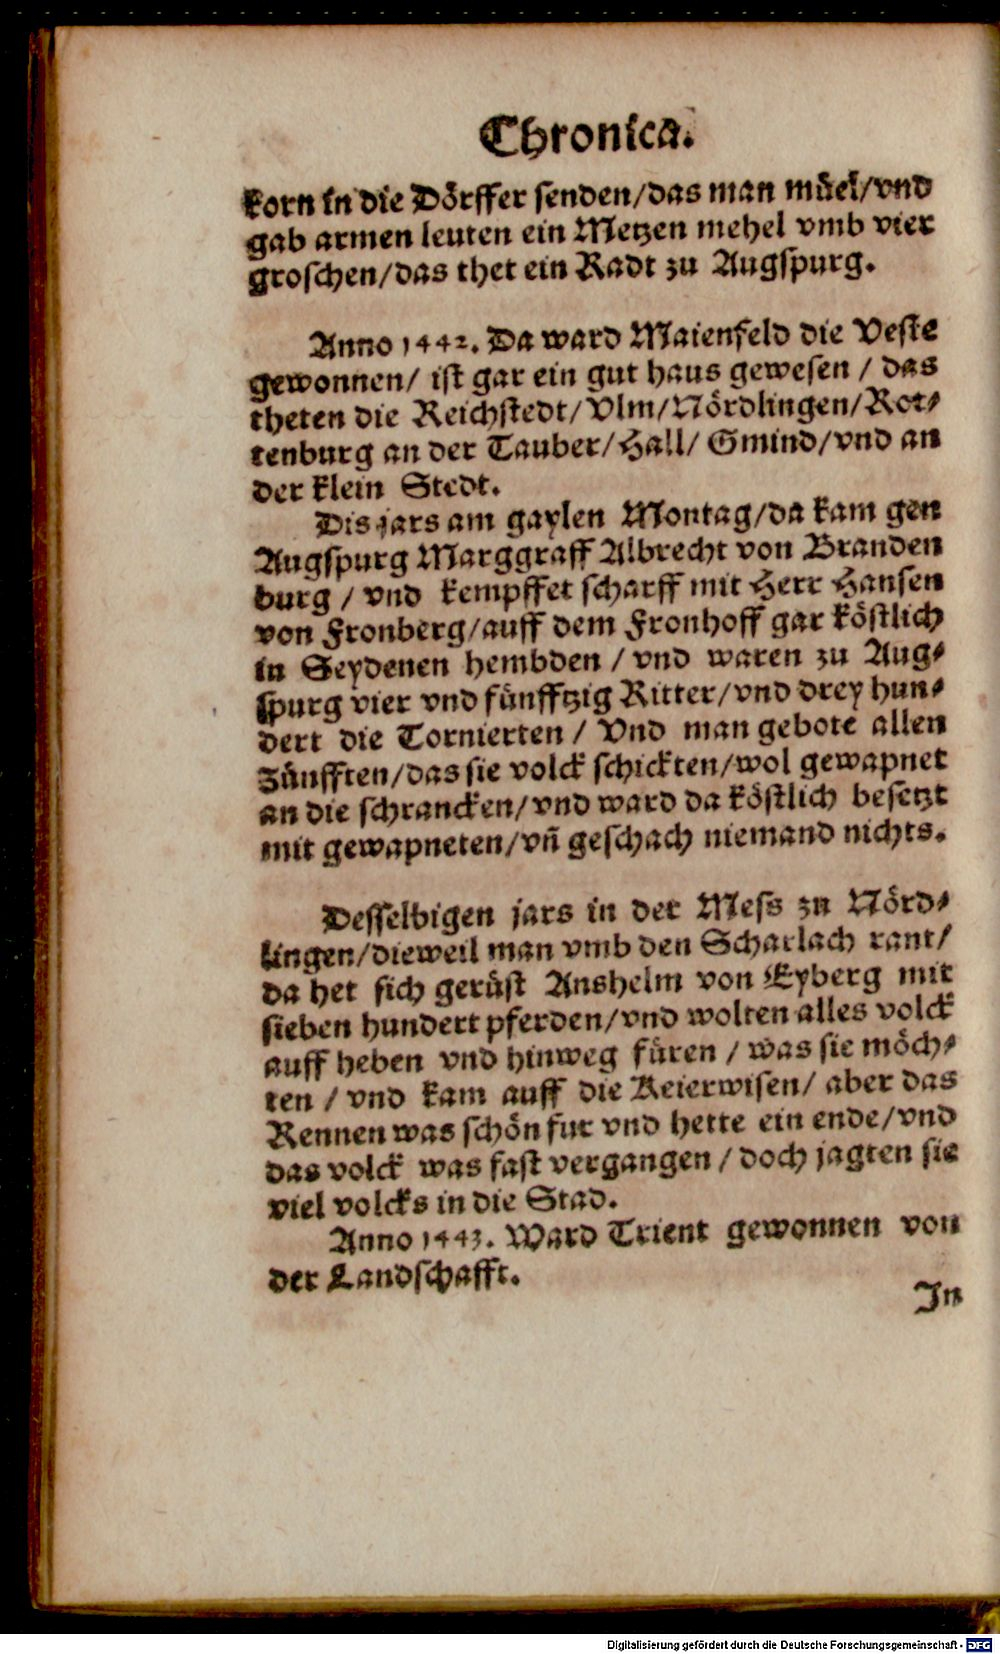 Chronica.
korn in die Dörffer senden/das man müel/vnd
gab armen leuten ein Metzen mehel vmb vier
groschen/das thet ein Radt zu Augspurg.
Anno 1442. Da ward Maienfeld die Veste
gewonnen/ ist gar ein gut haus gewesen / das
theten die Reichstedt/Vlm/Nördlingen/Rot⸗
tenburg an der Tauber/Hall/ Gmind/vnd an
der klein Stedt.
Dis jars am gaylen Montag/da kam gen
Augspurg Marggraff Albrecht von Branden
burg / vnd kempffet scharff mit Herr Hansen
von Fronberg/auff dem Fronhoff gar köstlich
in Seydenen hembden / vnd waren zu Aug⸗
spurg vier vnd fünfftzig Ritter/vnd drey hun⸗
dert die Tornierten / Vnd man gebote allen
Zünfften/das sie volck schickten/wol gewapnet
an die schrancken/vnd ward da köstlich besetzt
mit gewapneten/vñ geschach niemand nichts.
Desselbigen jars in der Mess zu Nörd⸗
lingen/dieweil man vmb den Scharlach rant/
da het sich gerüst Anshelm von Eyberg mit
sieben hundert pferden/vnd wolten alles volck
auff heben vnd hinweg füren / was sie möch⸗
ten / vnd kam auff die Keierwisen/ aber das
Rennen was schön fur vnd hette ein ende/vnd
das volck was fast vergangen / doch jagten sie
viel volcks in die Stad.
Anno 1443. Ward Trient gewonnen von
der Landschafft.
In
Digitalisierung gefördert durch die Deutsche Forschungsgemeinschaft - DFG